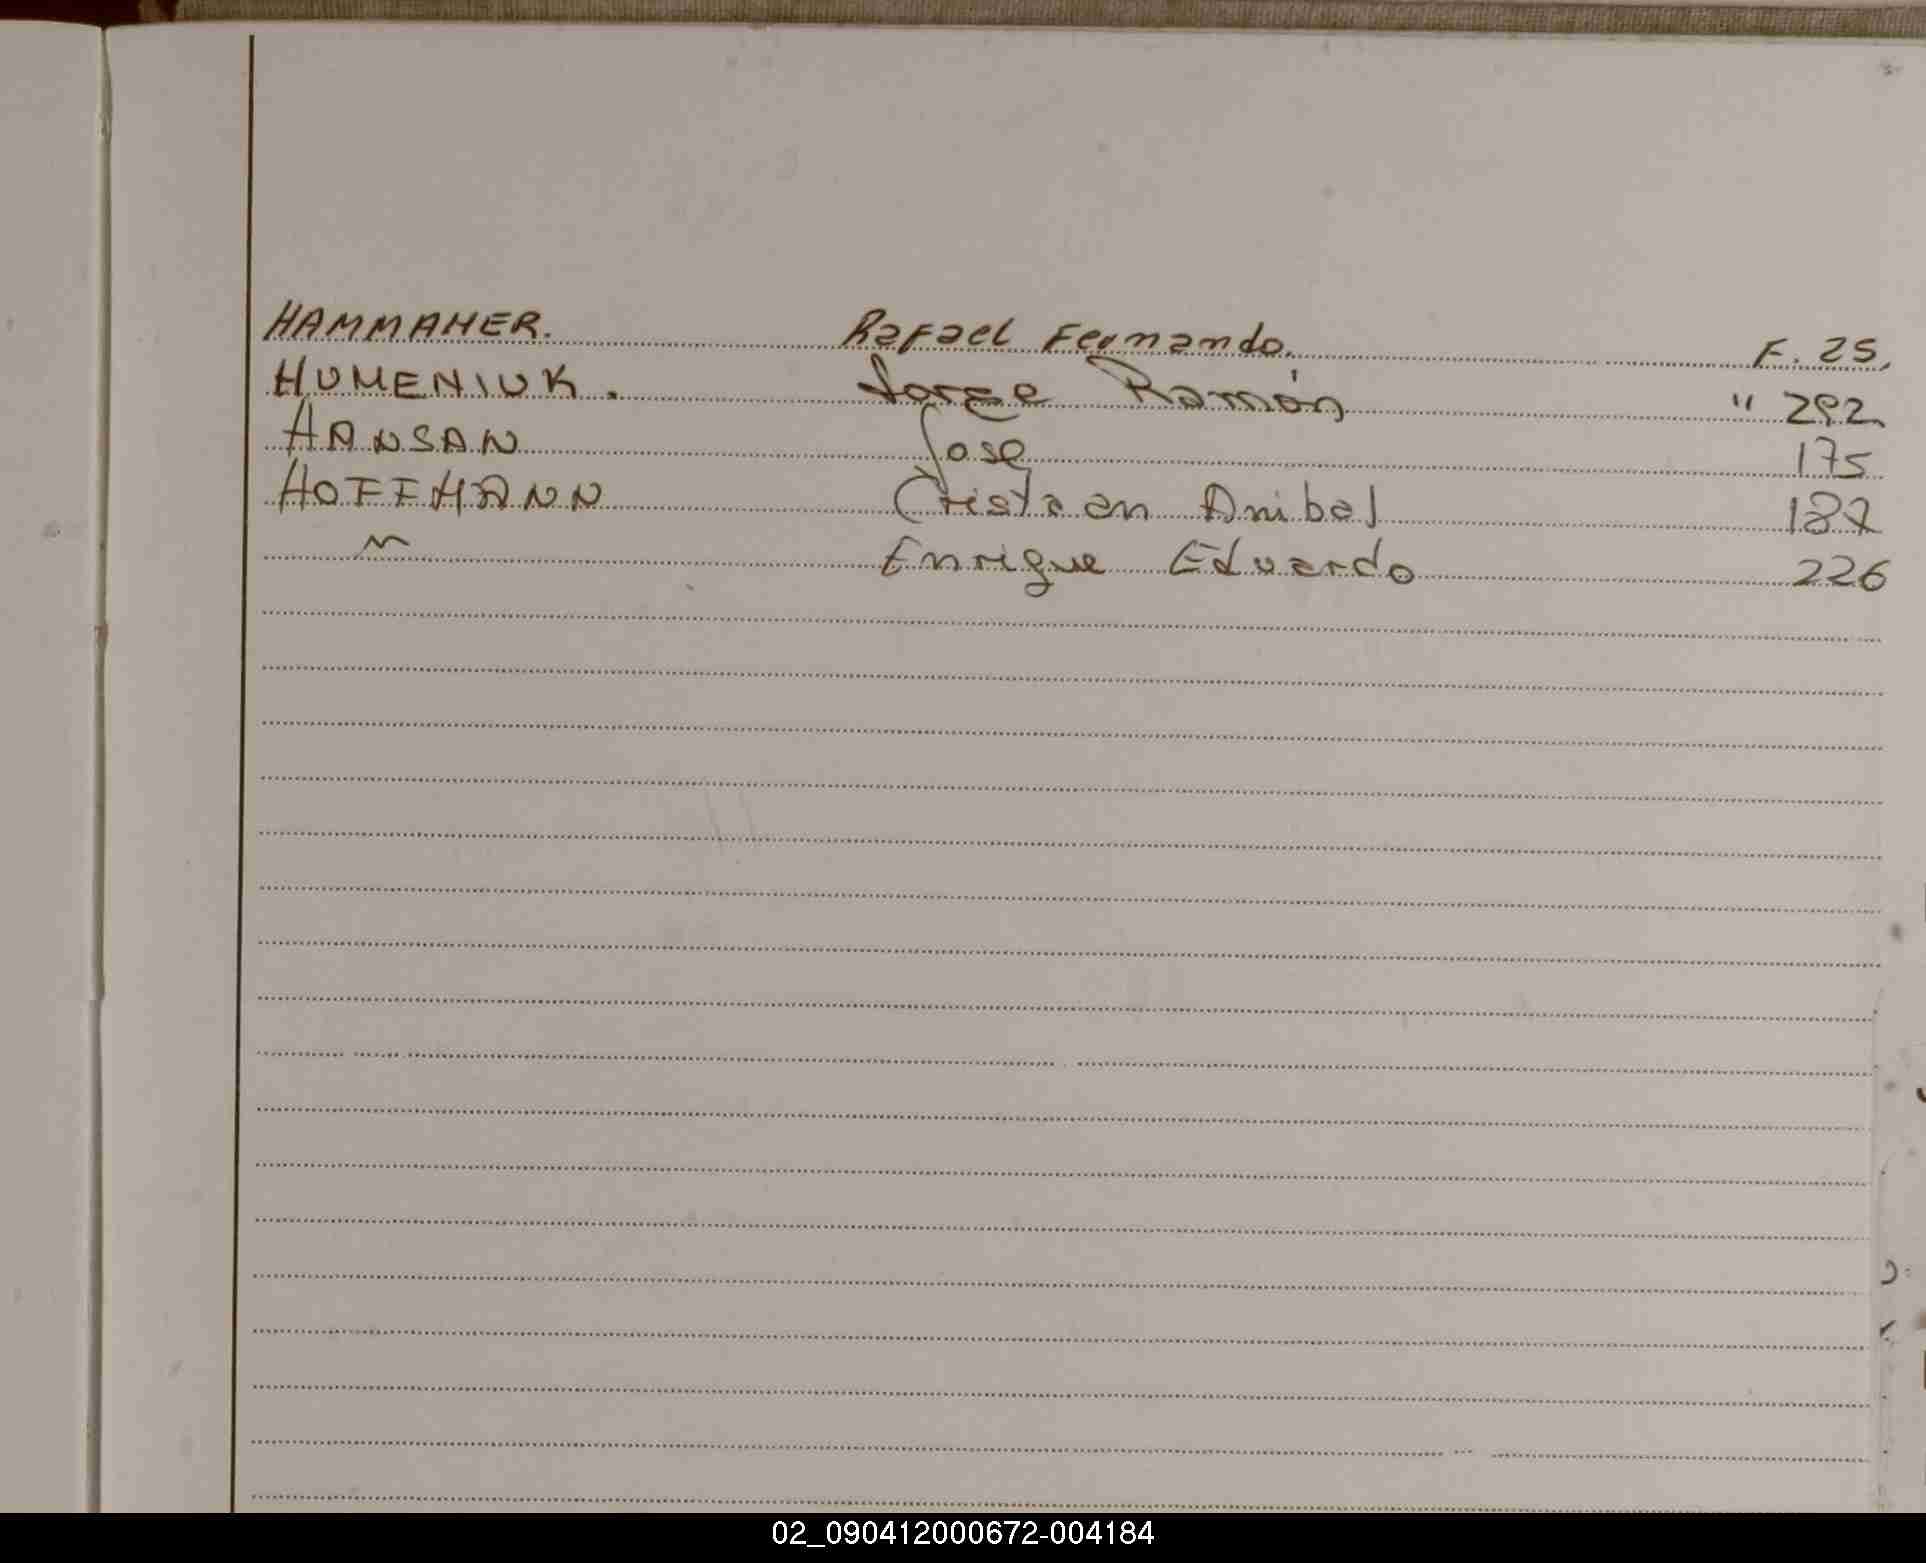 HAMMAHER. Rafael Fernando. F. 25.
HUMENIUK. Jorge Ramón " 292
HANSAN Jose 175
HOFFMANN Cristian Anibal 187
" Enrique Eduardo 226
02_090412000672-004184